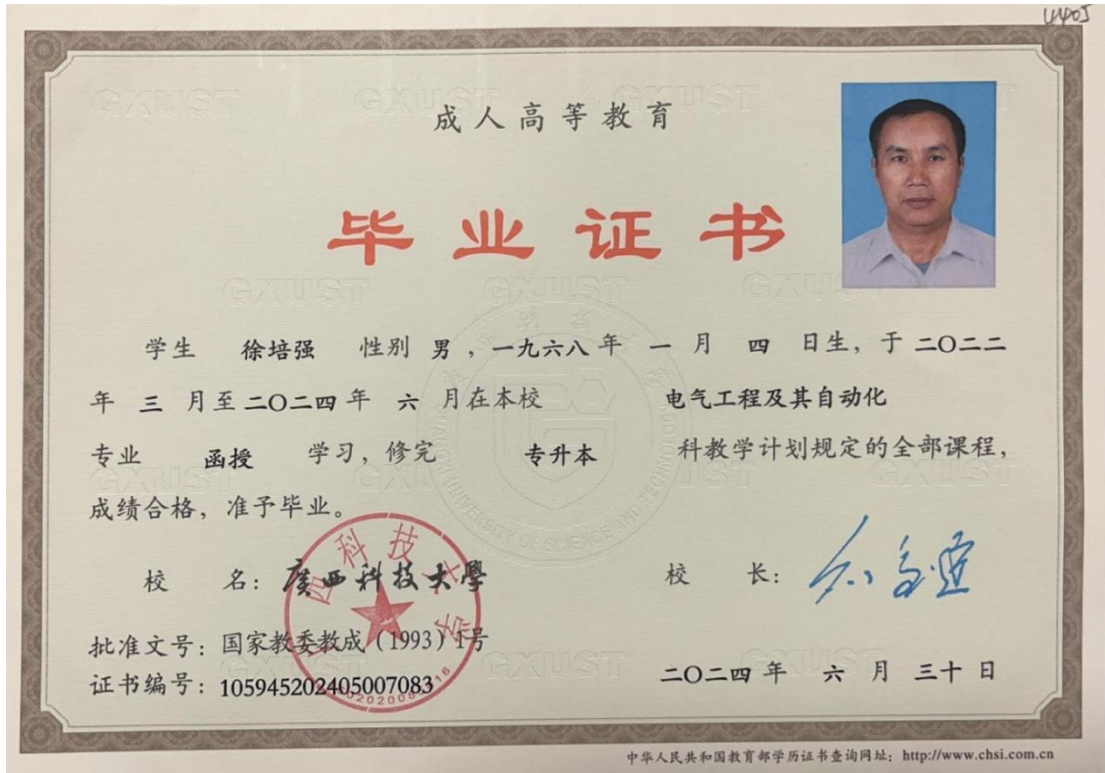 4405
成人高等教育
毕业证书
学生 徐培强 性别 男 ，一九六八 年 一 月 四 日生，于 二〇二二
年 三 月至 二〇二四 年 六 月在本校 电气工程及其自动化
专业 函授 学习，修完 专升本 科教学计划规定的全部课程，
成绩合格，准予毕业。
校 名：广西科技大學 校 长：
批准文号：国家教委教成（1993）1号
证书编号：105945202405007083
二〇二四 年 六 月 三十 日
中华人民共和国教育部学历证书查询网址：http://www.chsi.com.cn
GXUST
UNIVERSITY OF SCIENCE AND TECHNOLOGY